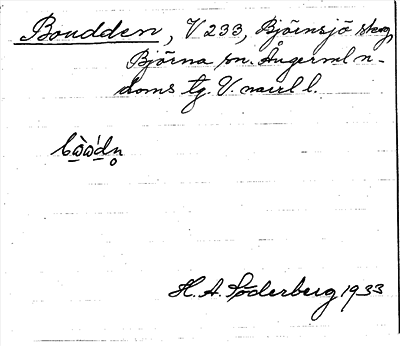 Boudden, V 233, Björnsjö skog,
Björna sn. Ångerml n-
doms tg. V.
bὼώdn̥
H. A. Söderberg 1933